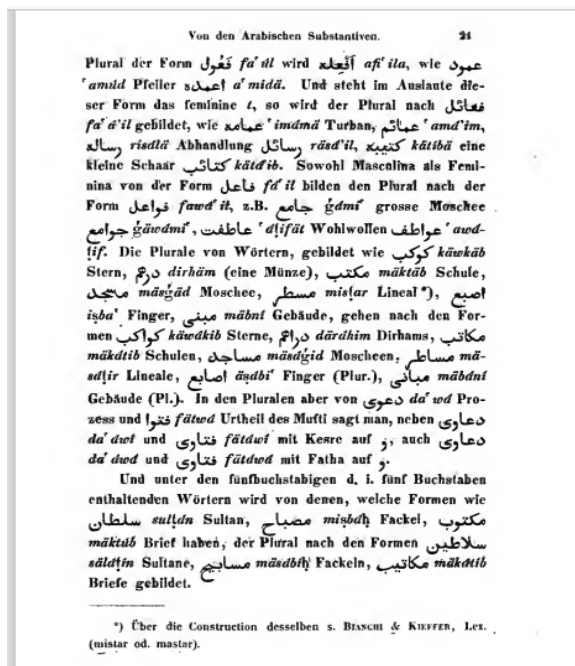 Von den Arabischen Substantiven. 21
Plural der Form فَعُول fa'úl wird أَفْعِلَه af'ila, wie عمود
'amúd Pfeiler اعمده a'midä. Und steht im Auslaute die-
ser Form das feminine t, so wird der Plural nach فعائل
fa'á'il gebildet, wie عمامه 'imámä Turban, عمائم 'amá'im,
رساله risálä Abhandlung رسائل räsá'il, كتيبه kätíbä eine
kleine Schaar كتائب kätáib. Sowohl Masculina als Femi-
nina von der Form فاعل fá'il bilden den Plural nach der
Form فواعل fawá'il, z.B. جامع ǵámi' grosse Moschee
جوامع ǵäwámi', عاطفت 'áṭifät Wohlwollen عواطف 'awá-
ṭif. Die Plurale von Wörtern, gebildet wie كوكب käwkäb
Stern, درهم dirhäm (eine Münze), مكتب mäktäb Schule,
مسجد mäsǵäd Moschee, مسطر misṭar Lineal*), اصبع
iṣba' Finger, مبنى mäbní Gebäude, gehen nach den For-
men كواكب käwákib Sterne, دراهم däráhim Dirhams, مكاتب
mäkátib Schulen, مساجد mäsáǵid Moscheen, مساطر mä-
sáṭir Lineale, اصابع äṣábi' Finger (Plur.), مبانى mäbání
Gebäude (Pl.). In den Pluralen aber von دعوى da'wá Pro-
zess und فتوا fätwá Urtheil des Mufti sagt man, neben دعاوى
da'áwí und فتاوى fätáwí mit Kesre auf و, auch دعاوى
da'áwá und فتاوى fätáwá mit Fatha auf و.
Und unter den fünfbuchstabigen d. i. fünf Buchstaben
enthaltenden Wörtern wird von denen, welche Formen wie
سلطان sulṭán Sultan, مصباح miṣbáḥ Fackel, مكتوب
mäktúb Brief haben, der Plural nach den Formen سلاطين
säláṭín Sultane, مسابيح mäsábíḥ Fackeln, مكاتيب mäkátíb
Briefe gebildet.
*) Über die Construction desselben s. BIANCHI & KIEFFER, Lex.
(mistar od. mastar).